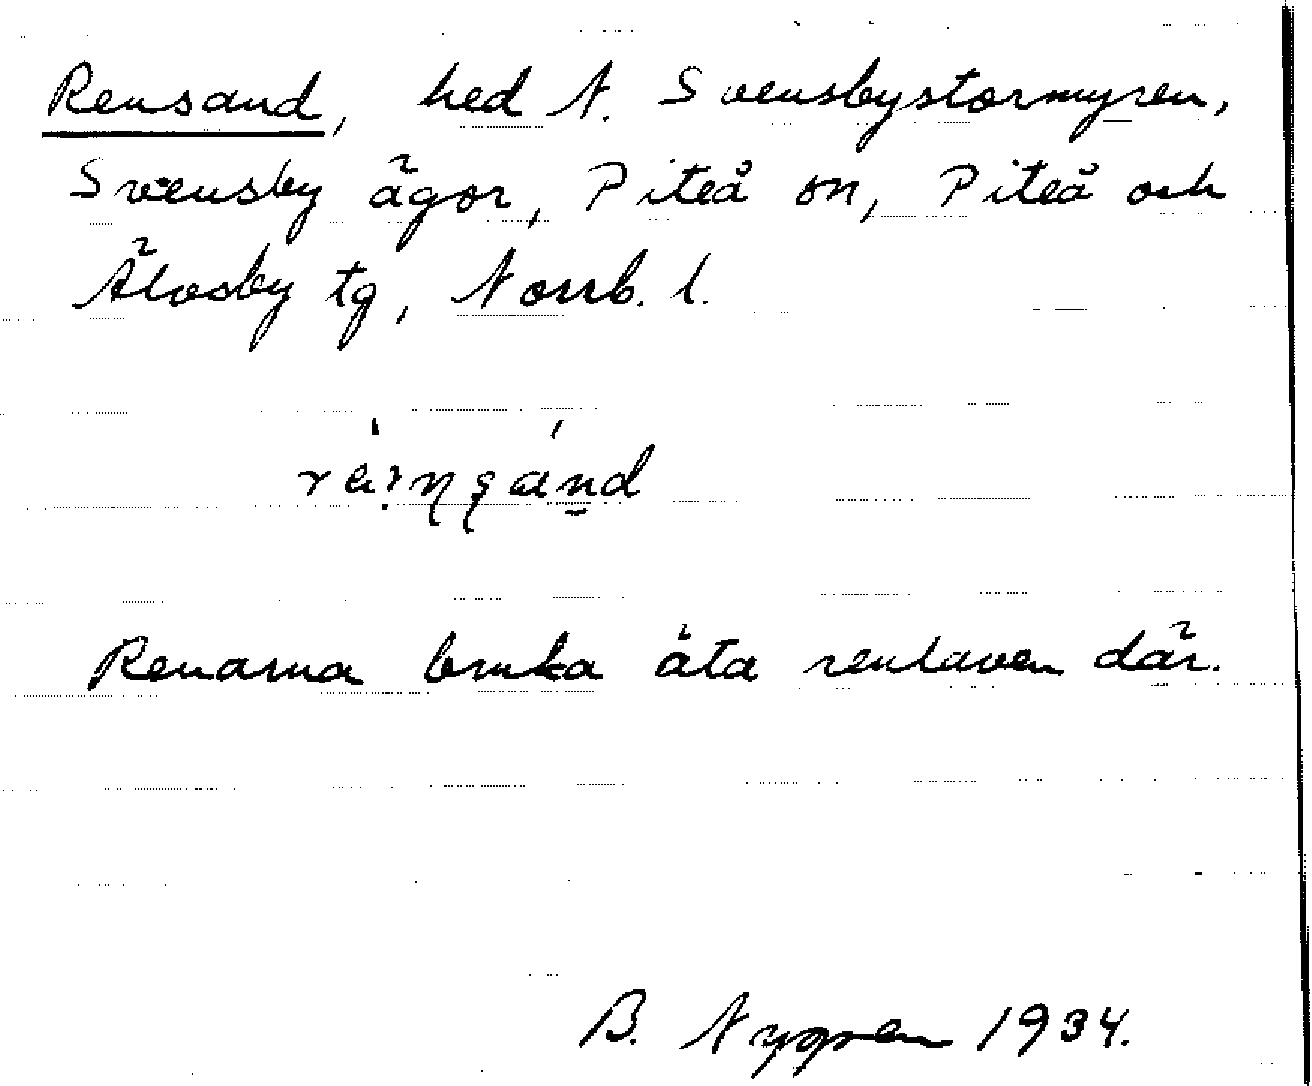 Rensand, hed N. Svensbystormyren,
Svensby ägor, Piteå sn, Piteå och
Älvsby tg, Norrb. l.
Renarna bruka äta renlaven där.
B. Nygren 1934.